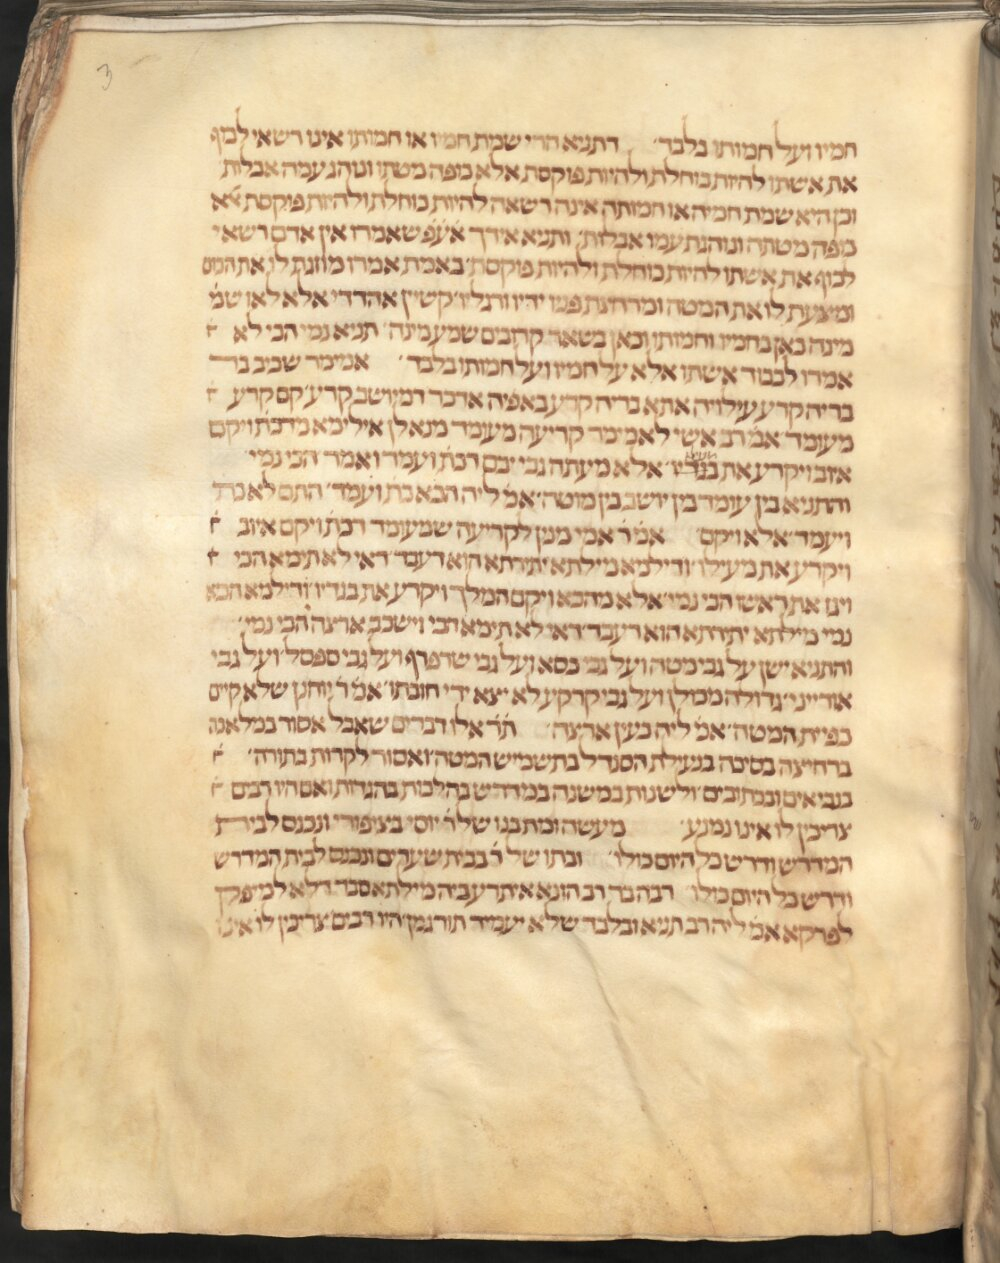 3
חמיו ועל חמותו בלבד׳ דתניא הרי שמת חמיו או חמותו אינו רשאי לכוף
את אשתו להיות כוחלת ולהיות פוקסת אלא כופה מטתו ונוהג עמה אבלות
וכן היא שמת חמיה או חמותה אינה רשאה להיות כוחלת ולהיות פוקסת אֹא
כופה מטתה ונוהגת עמו אבלות׳ ותניא אידך אֹעֹפֹ שאמרו אין אדם רשאי
לכוף את אשתו להיות כוחלת ולהיות פוקסת׳ באמת אמרו מוזגת לו את הכוס
ומצעת לו את המטה ומרחצת פניו ידיו ורגליו׳ קשיין אהדדי אלא לאו שמֹ
מינה כאן בחמיו וחמותו וכאן בשאר קרובים שמע מינה׳ תניא נמי הכי לא
אמרו לכבוד אשתו אלא על חמיו ועל חמותו בלבד׳ אמימר שכיב בר
בריה קרע עילויה אתא בריה קרע באפיה אדכר דמיושב קרע׳ קם קרע
מעומד׳ אמֹ רב אשי לאמימר קריעה מעומד מנא לן אילימא מדכתֹ ויקם
איוב ויקרע את בגדיו׳ אלא מעתה גבי יבם דכתֹ ועמד ואמר׳ הכי נמי׳
מעילו
והתניא בין עומד בין יושב בין מוטה׳ אמֹ ליה הכא כתֹ ועמד׳ התם לא כתֹ
ויעמד׳ אלא ויקם׳ אמֹ רֹ אמי מנין לקריעה שמעומד דכתֹ ויקם איוב
ויקרע את מעילו׳ ודילמא מילתא יתירתא הוא דעבד׳ דאי לא תימא הכי
ויגז את ראשו הכי נמי׳ אלא מהכא ויקם המלך ויקרע את בגדיו׳ ודילמא הכא
נמי מילתא יתירתא הוא דעבד׳ דאי לא תימא הכי וישכב ארצה הכי נמי׳
והתניא ישן על גבי מטה ועל גבי כסא ועל גבי שרפרף ועל גבי ספסל׳ ועל גבי
אודייני׳ גדולה מכולן ועל גבי קרקע לא יצא ידי חובתו׳ אמֹ רֹ יוחנן שלא קיים
כפיית המטה׳ אמֹ ליה כעין ארצה׳ תֹרֹ אלו דברים שאבל אסור במלאכה
ברחיצה בסיכה בנעילת הסנדל בתשמיש המטה׳ ואסור לקרות בתורה׳
בנביאים ובכתובים׳ ולשנות במשנה במדרש בהלכות בהגדות ואם היו רבים
צריכין לו אינו נמנע׳ מעשה ומת בנו שלר֗ יוסי בציפורי׳ ונכנס לבית
המדרש ודרש כל היום כולו׳ ובתו של רֹ בבית שערים ונכנס לבית המדרש
ודרש כל היום כולו׳ רבה בר רב הונא איתרע ביה מילתא סבר דלא למיפק
לפרקא אמֹ ליה רב תניא ובלבד שלא יעמיד תורגמן׳ היו רבים צריכין לו אינו